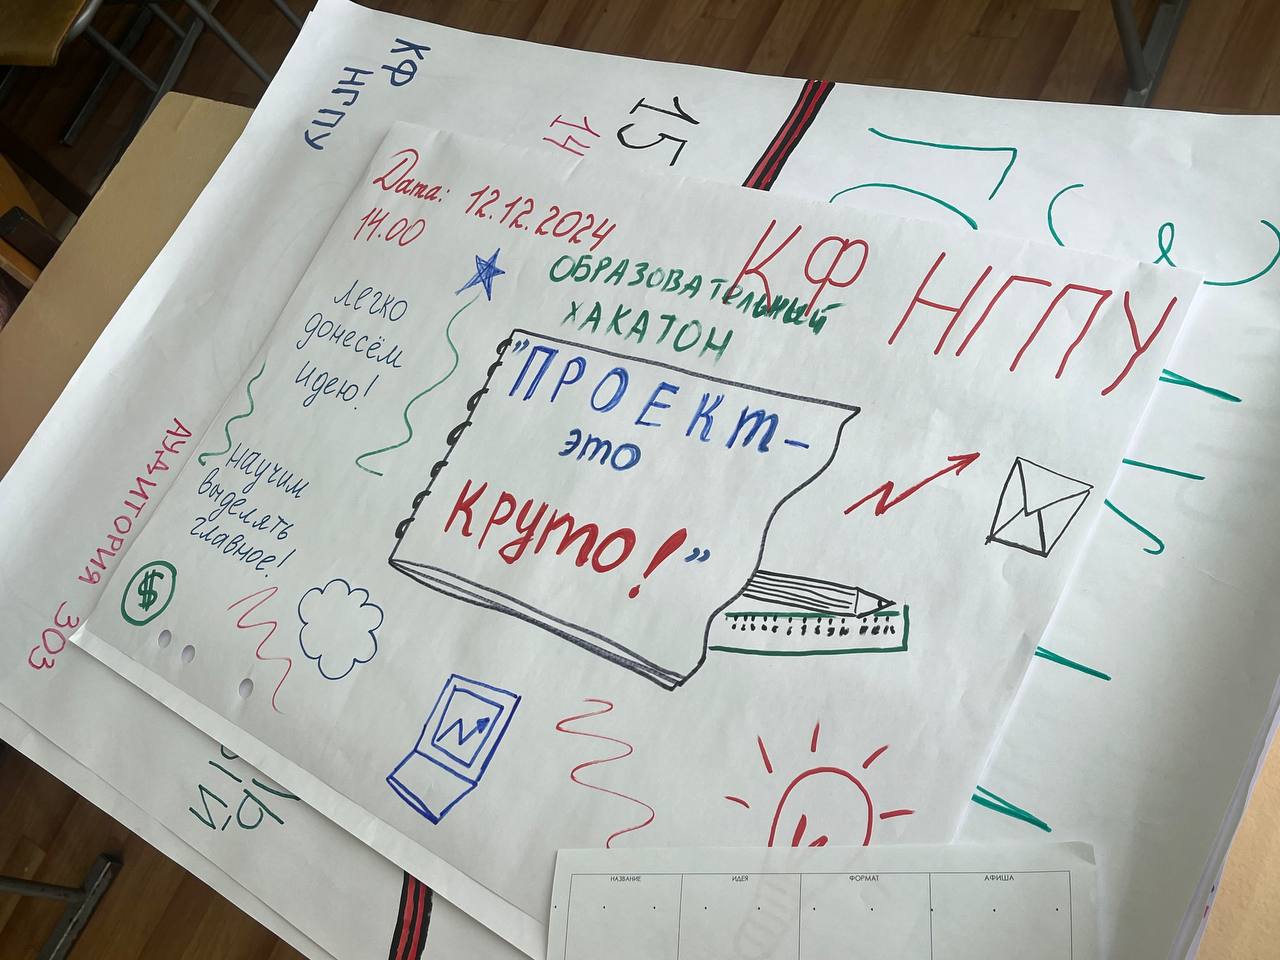 КФ
НГПУ
15
14
Дата: 12.12.2024
14.00
КФ НГПУ
ОБРАЗОВАТЕЛЬНЫЙ
ХАКАТОН
легко
донесём
идею!
"ПРОЕКТ-
это
КРУТО!"
научим
выделять
главное!
$
АУДИТОРИЯ 303
НАЗВАНИЕ
ИДЕЯ
ФОРМАТ
АФИША